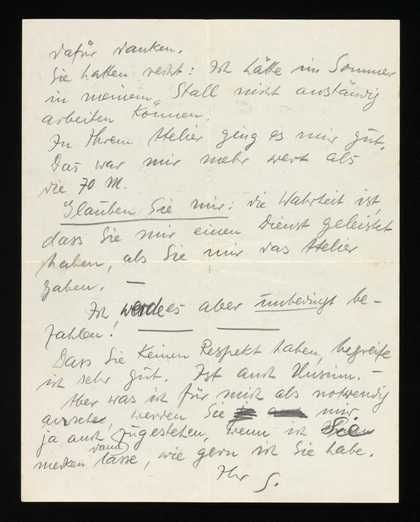 dafür danken.
Sie hatten recht: Ich hätte im Sommer
in meinem Stall nicht anständig
arbeiten können.
In Ihrem Atelier ging es mir gut.
Das war mir mehr wert als
die 70 M.
Glauben Sie mir: die Wahrheit ist,
dass Sie mir einen Dienst geleistet
haben, als Sie mir das Atelier
gaben. —
Ich werde es aber unbedingt be-
zahlen!
Dass Sie keinen Respekt haben, begreife
ich sehr gut. Ist auch Unsinn. —
Aber was ich für mich als notwendig
ansehe, werden Sie mir
ja auch zugestehen, wenn ich Sie
merken dann lasse, wie gern ich Sie habe.
Ihr S.